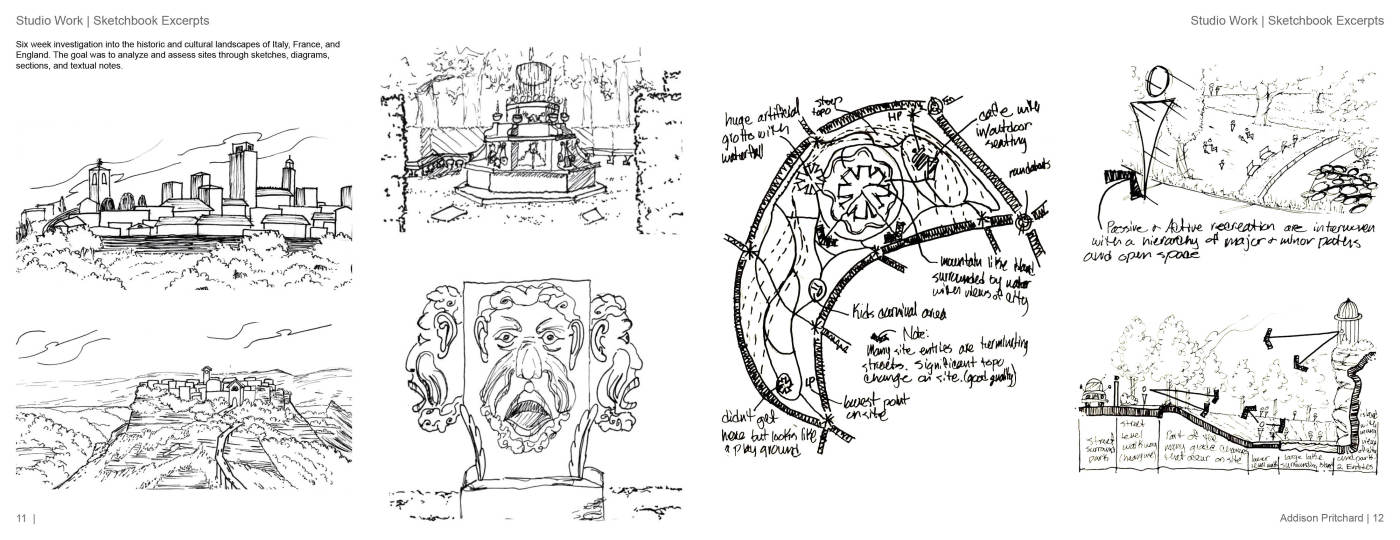 Studio Work | Sketchbook Excerpts
Six week investigation into the historic and cultural landscapes of Italy, France, and
England. The goal was to analyze and assess sites through sketches, diagrams,
sections, and textual notes.
11 |
Studio Work | Sketchbook Excerpts
huge artificial
grotto with
waterfall
steep
topo
HP
cafe with
in/outdoor
seating
roundabouts
mountain like island
surrounded by water
with views of city
Kids carnival area
Note:
Many site entries are terminating
streets. Significant topo
change on site. (good quality)
LP
lowest point
on site
didn't get
here but looks like
a play ground
Passive & Active recreation are interwoven
with a hierarchy of major & minor paths
and open space
street
surround
park
street
level
walkway
Part of the
many grade changes
that occur on site
lower
level
large lake
surrounding island
2 Entries
Addison Pritchard | 12